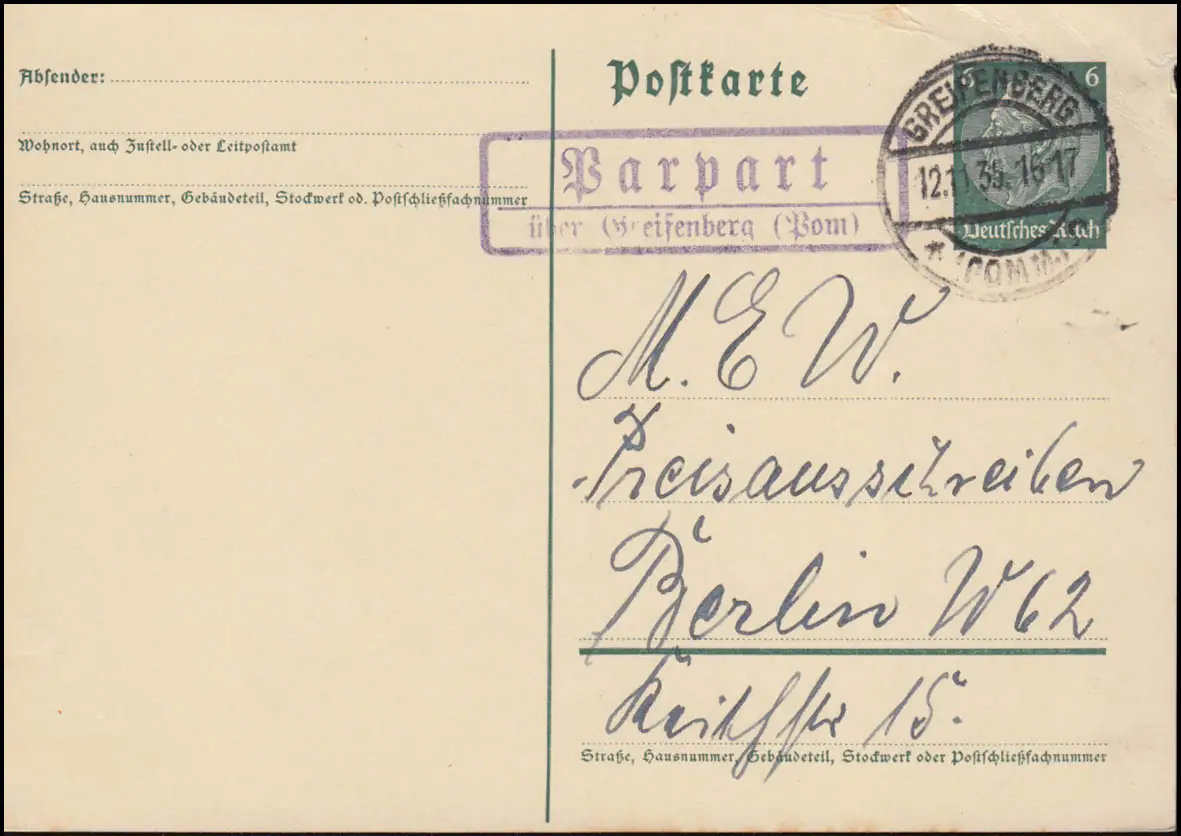 Absender:
Wohnort, auch Zustell- oder Leitpostamt
Straße, Hausnummer, Gebäudeteil, Stockwerk od. Postschließfachnummer
Postkarte
6
Deutsches Reich
GREIFENBERG
12.11.35.16-17
* (POMM.)
Parpart
über Greifenberg (Pom)
M. E W.
Preisausschreiben
Berlin W 62
Keithstr 15.
Straße, Hausnummer, Gebäudeteil, Stockwerk oder Postschließfachnummer